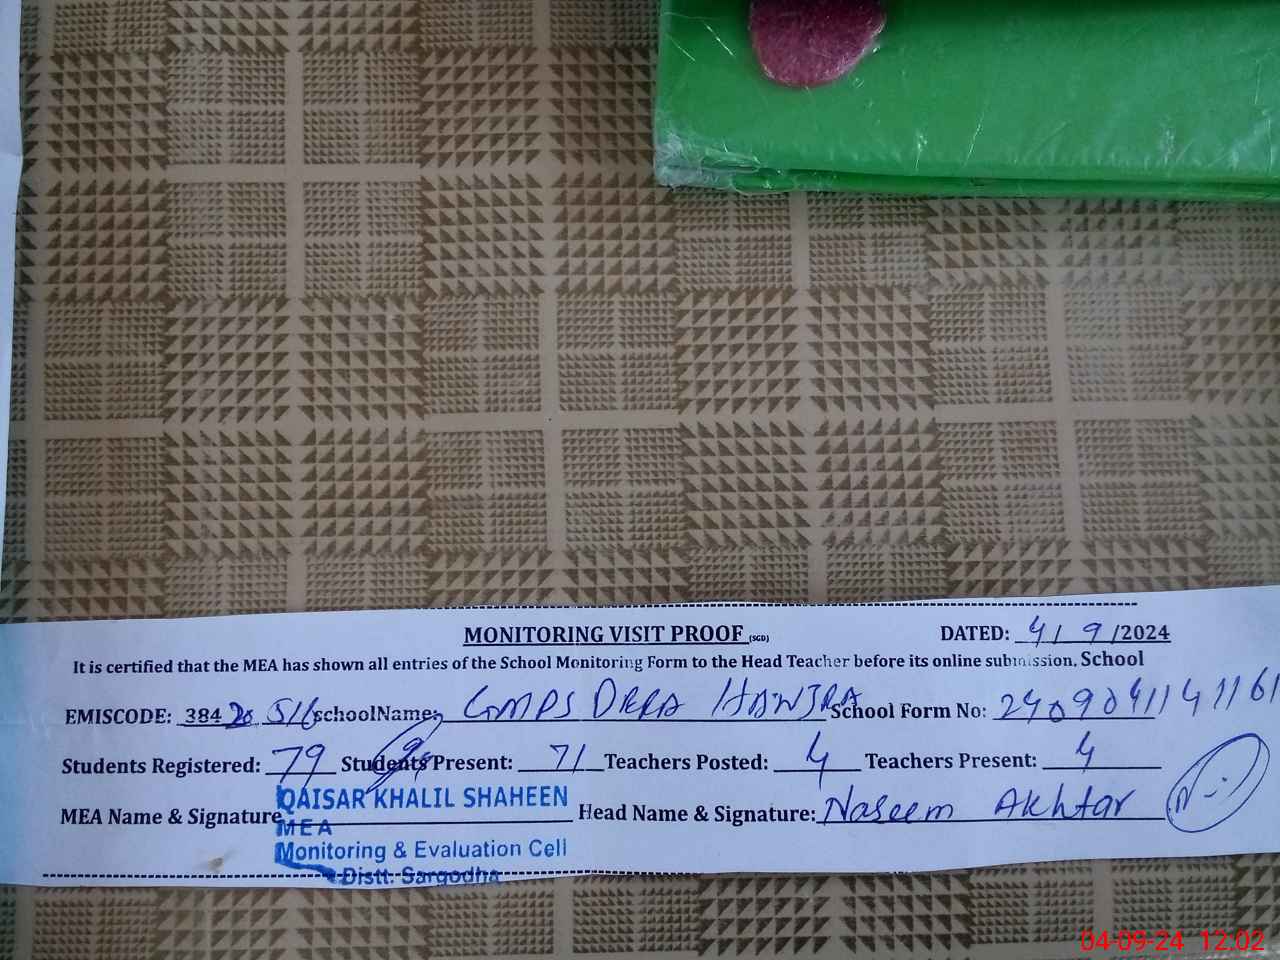 MONITORING VISIT PROOF (SGD) DATED: 4/ 9 /2024
It is certified that the MEA has shown all entries of the School Monitoring Form to the Head Teacher before its online submission. School
EMISCODE: 384 20 516 schoolName: GMPS DERA HAWJRA School Form No: 24090411411 61
Students Registered: 79 Students Present: 71 Teachers Posted: 4 Teachers Present: 4
MEA Name & Signature QAISAR KHALIL SHAHEEN Head Name & Signature: Naseem Akhtar
MEA
Monitoring & Evaluation Cell
Distt: Sargodha
04-09-24 12:02